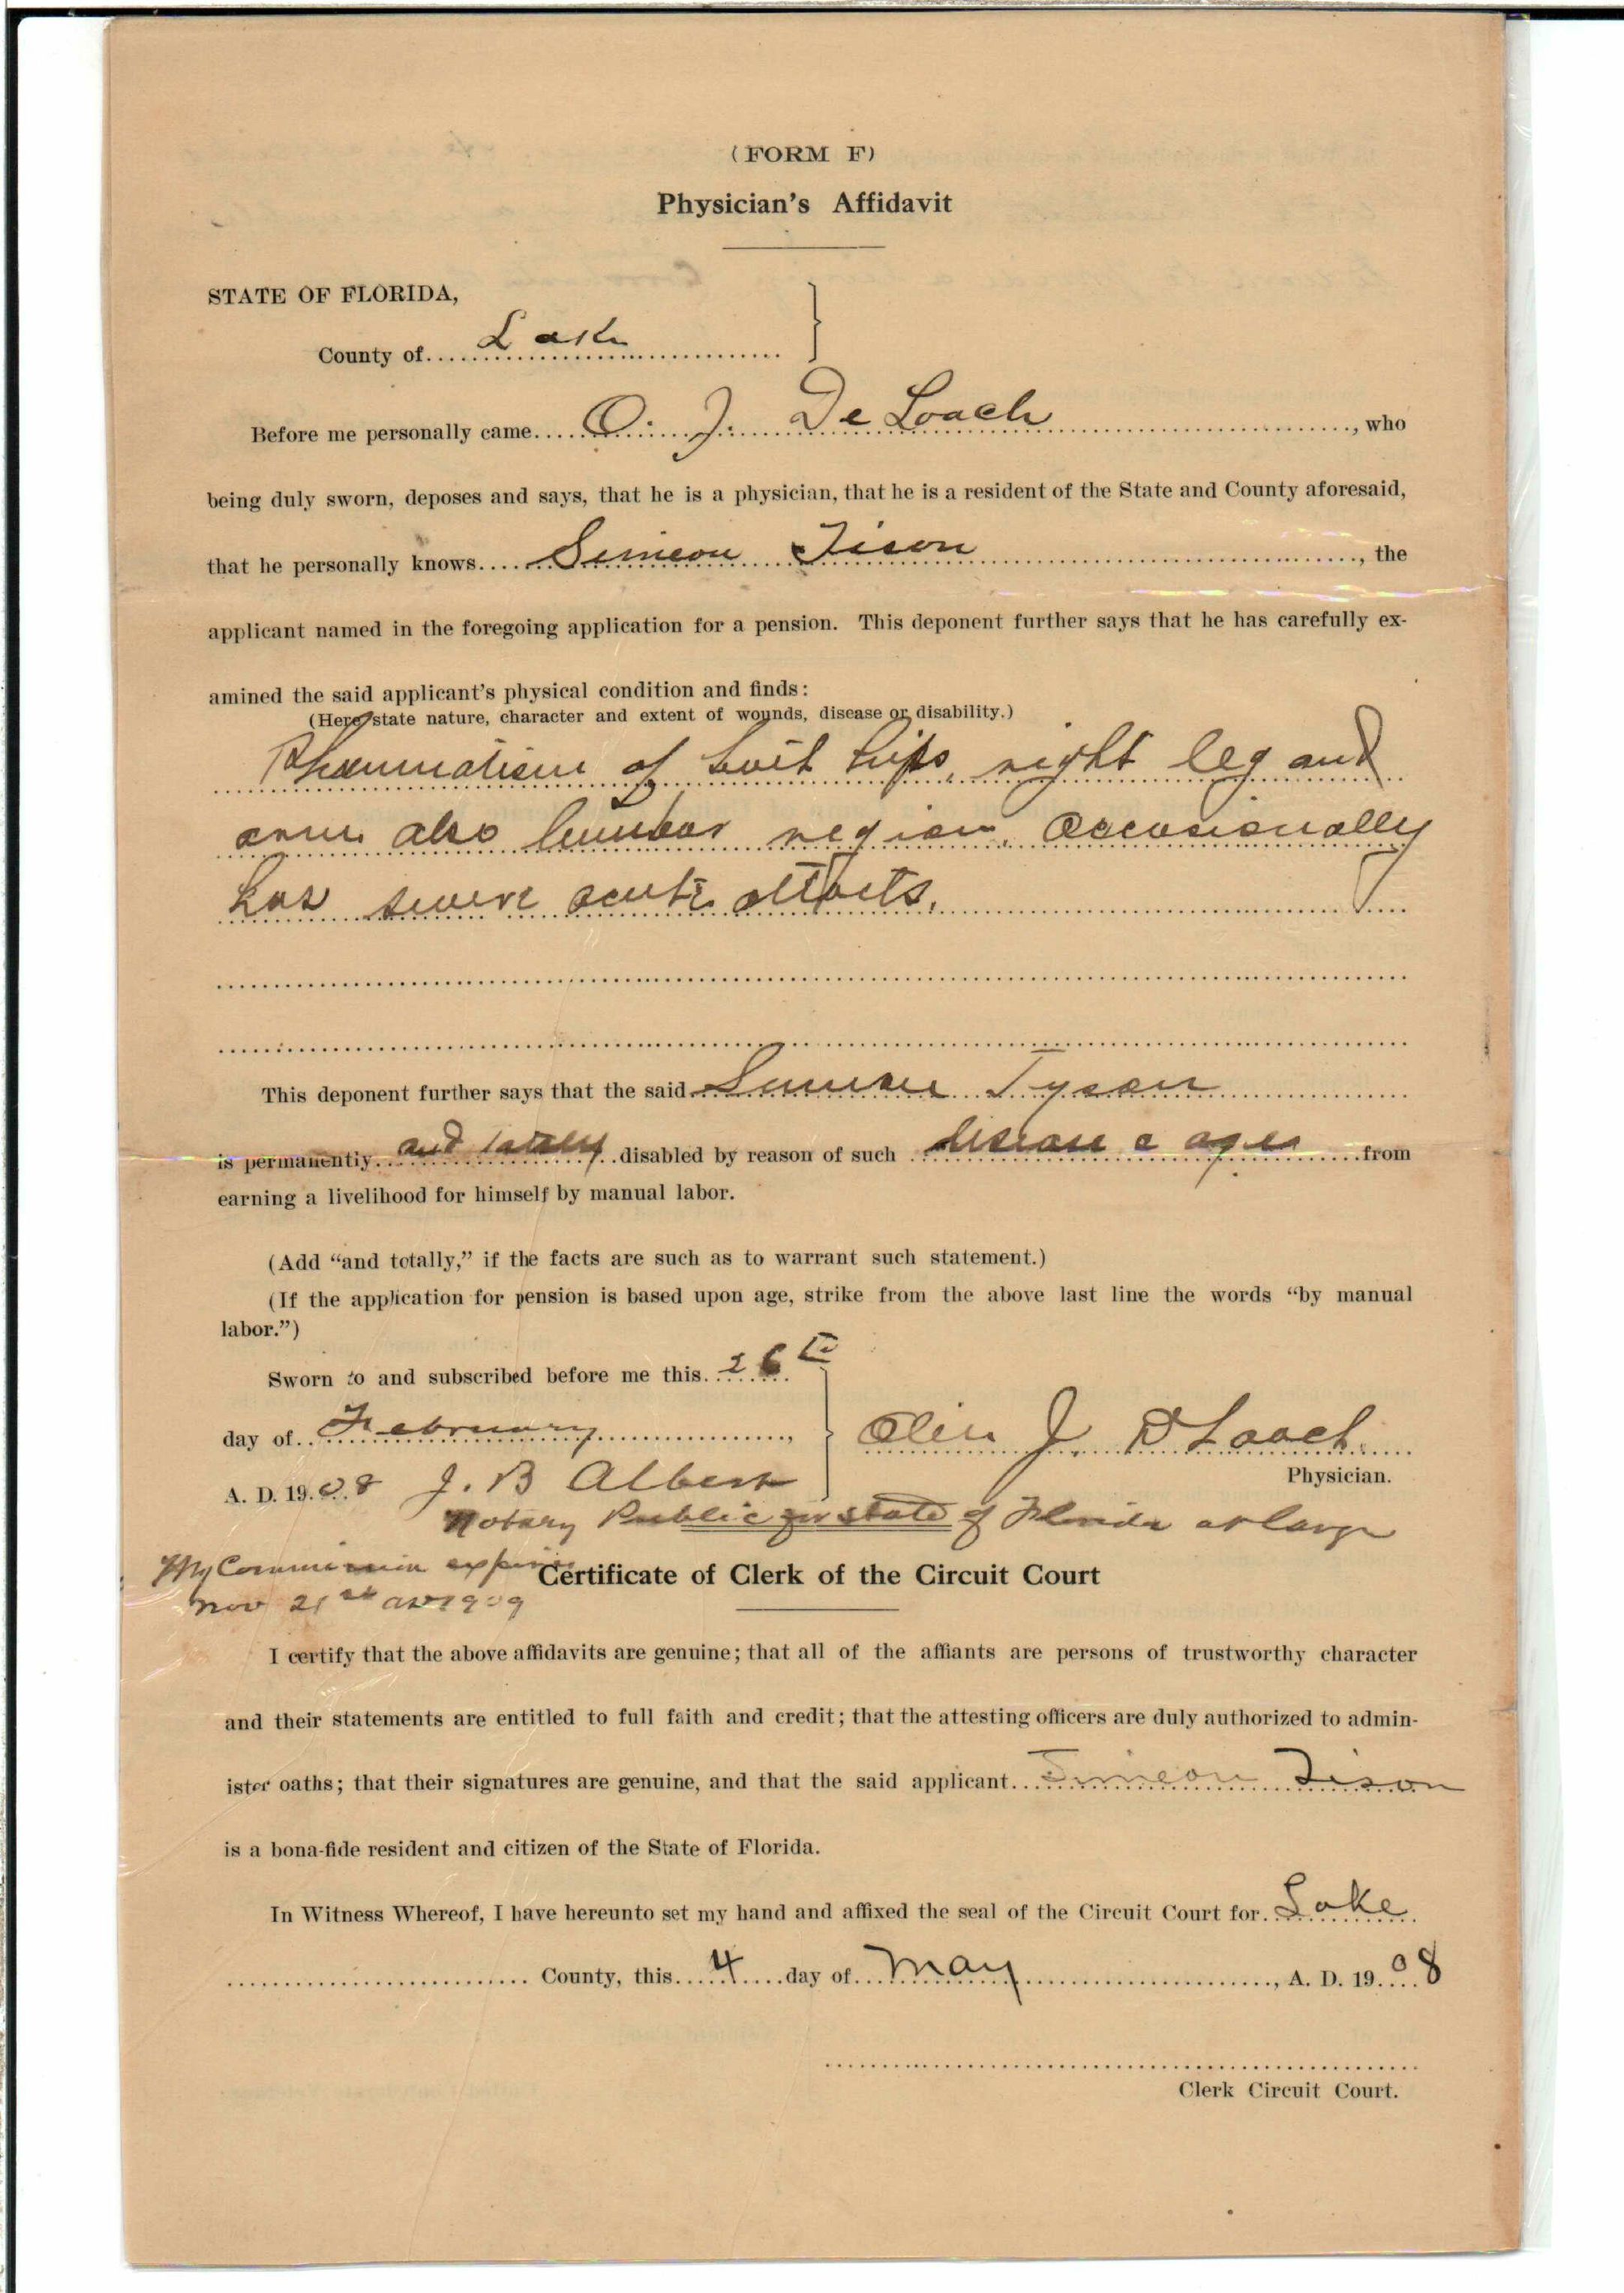 (FORM F)
Physician's Affidavit
STATE OF FLORIDA,
County of Lake
Before me personally came O. J. De Loach, who
being duly sworn, deposes and says, that he is a physician, that he is a resident of the State and County aforesaid,
that he personally knows Simeon Tison, the
applicant named in the foregoing application for a pension. This deponent further says that he has carefully ex-
amined the said applicant's physical condition and finds:
(Here state nature, character and extent of wounds, disease or disability.)
Rheumatism of both hips, right leg and
arm also lumbar region. Occasionally
has severe acute attacks.
This deponent further says that the said Simeon Tyson
is permanently and totally disabled by reason of such disease & age from
earning a livelihood for himself by manual labor.
(Add "and totally," if the facts are such as to warrant such statement.)
(If the application for pension is based upon age, strike from the above last line the words "by manual
labor.")
Sworn to and subscribed before me this 26th
day of February,
Olin J. DLoach
Physician.
A. D. 1908 J. B Albert
Notary Public for state of Florida at large
My Commission expires
Nov 21st AD 1909
Certificate of Clerk of the Circuit Court
I certify that the above affidavits are genuine; that all of the affiants are persons of trustworthy character
and their statements are entitled to full faith and credit; that the attesting officers are duly authorized to admin-
ister oaths; that their signatures are genuine, and that the said applicant Simeon Tison
is a bona-fide resident and citizen of the State of Florida.
In Witness Whereof, I have hereunto set my hand and affixed the seal of the Circuit Court for Lake
County, this 4 day of May, A. D. 1908
Clerk Circuit Court.